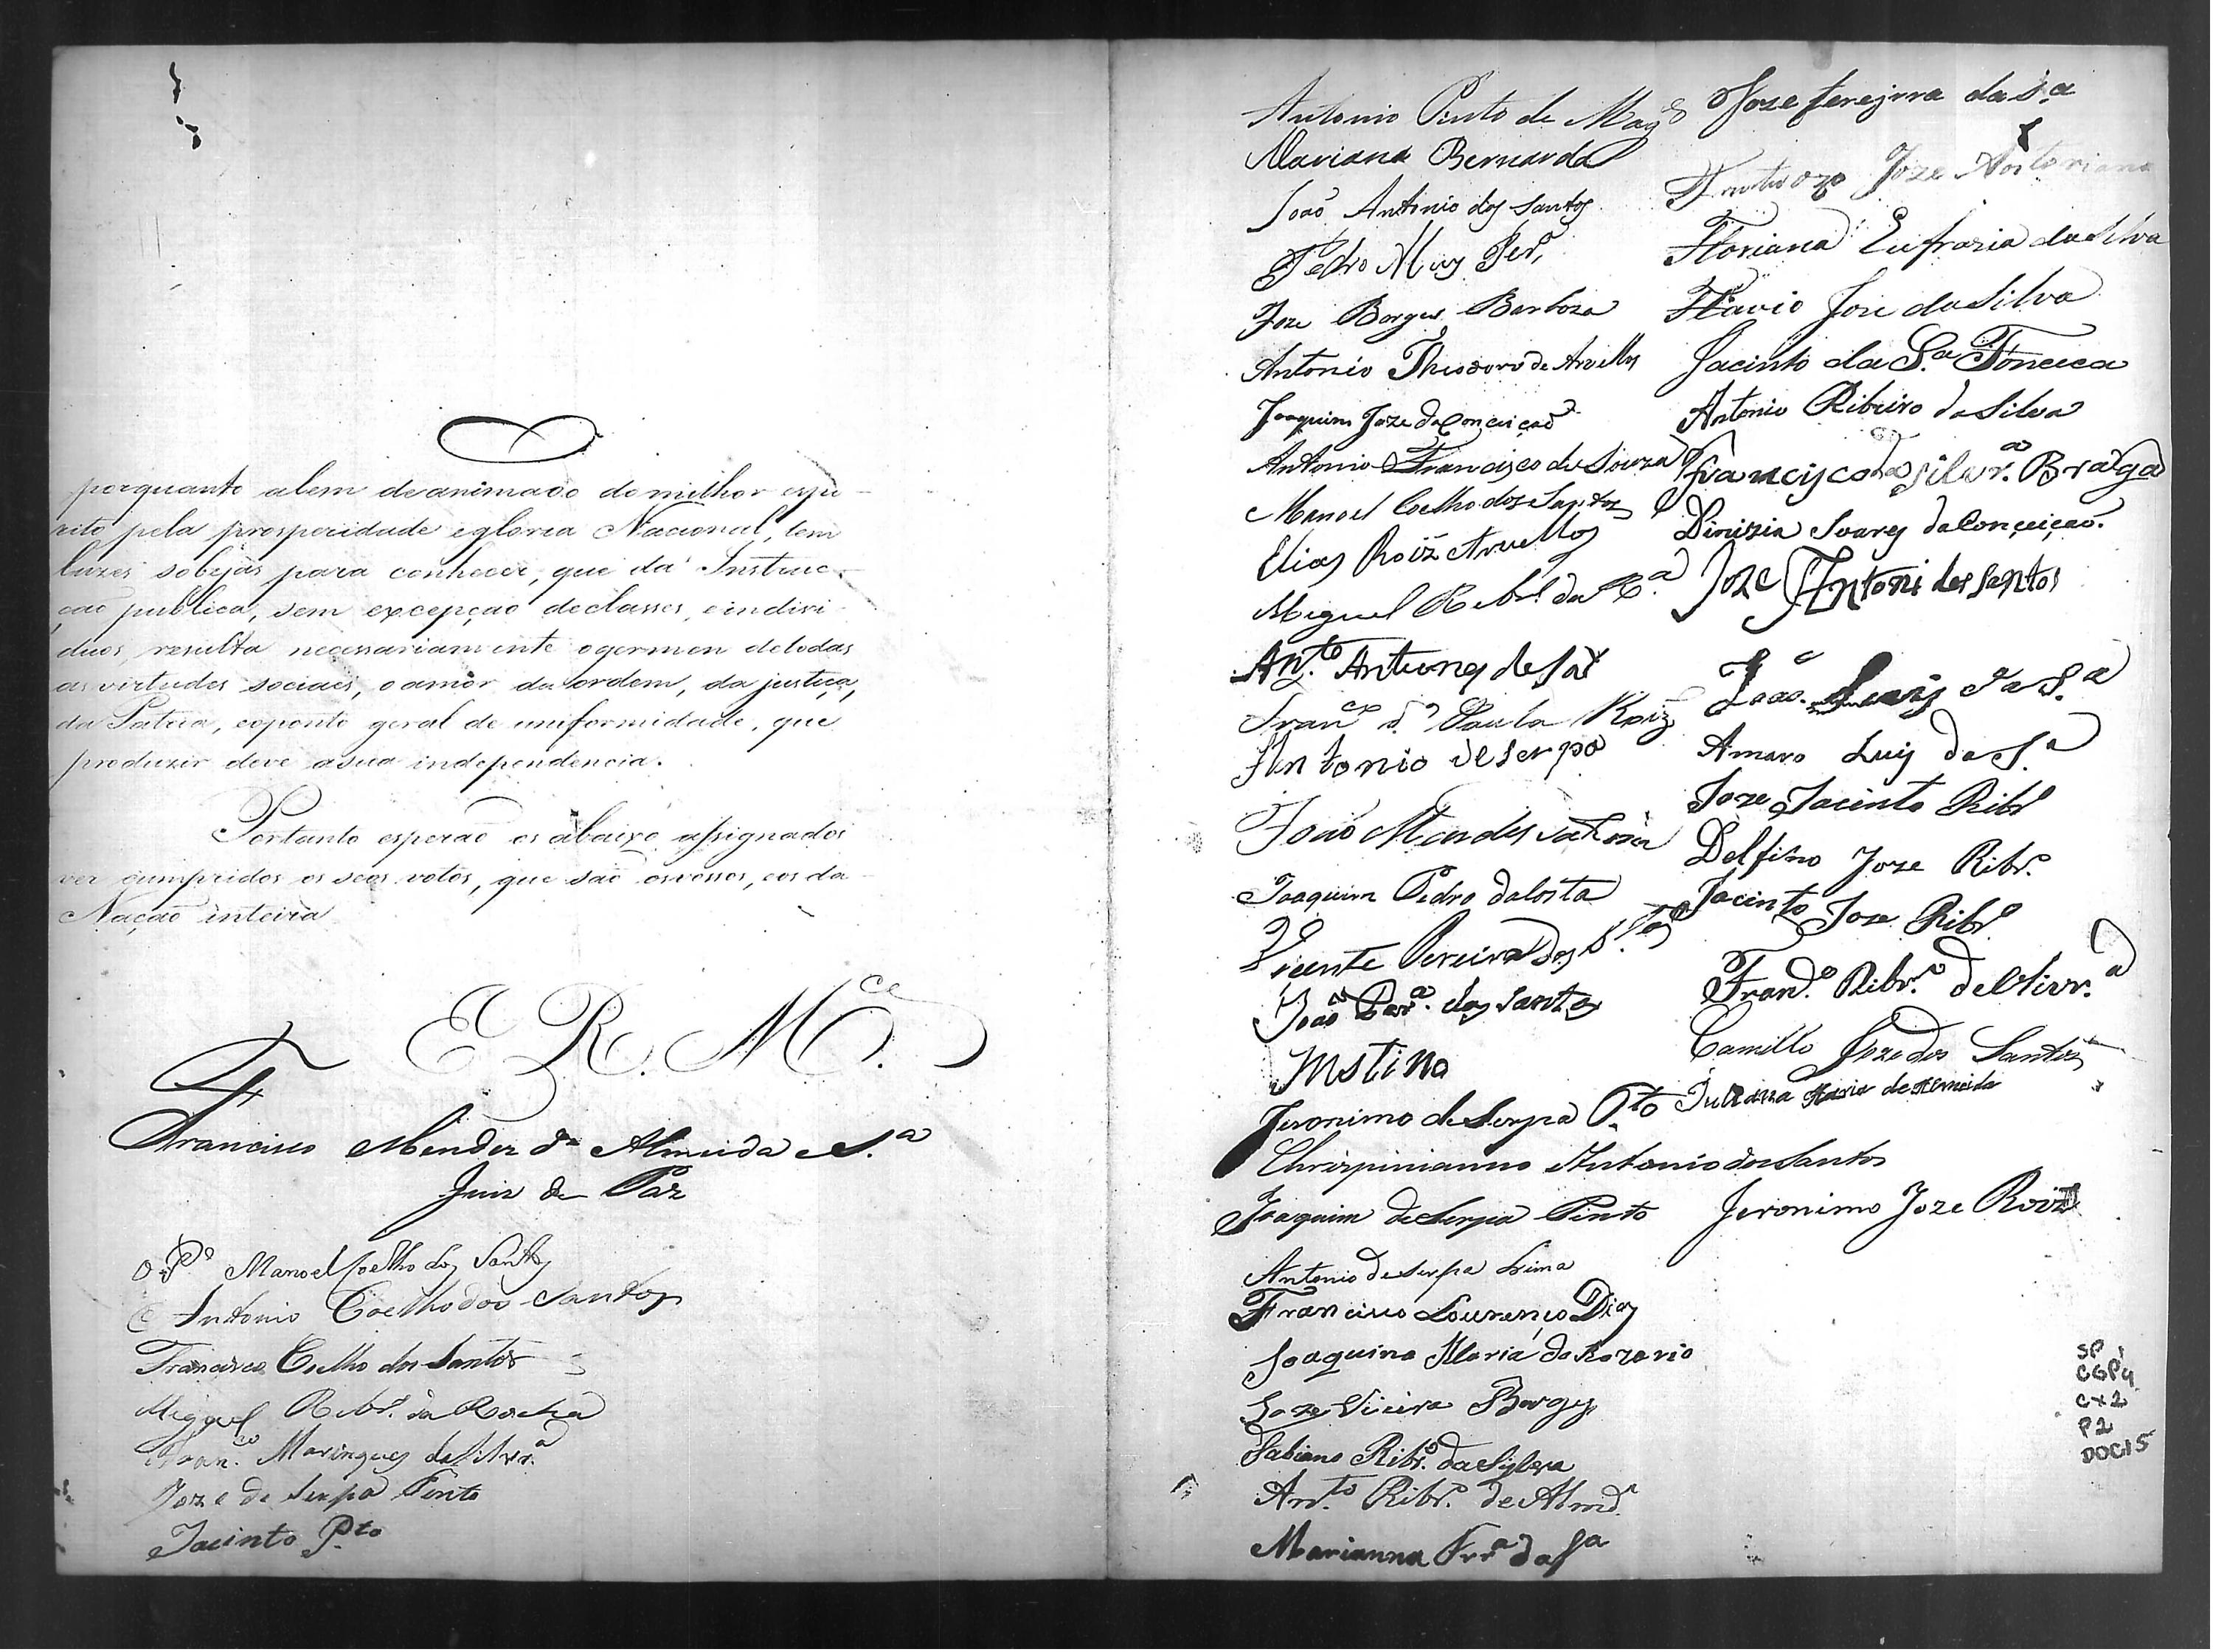 porquanto alem de animado do milhor espi-
rito pela prosperidade e gloria Nacional, tem
luzes sobejas para conhecer, que da Instruc-
ção publica, sem excepção de classes, e indivi-
duos, resulta necessariamente o germen de todas
as virtudes sociaes, o amor da ordem, da justiça,
da Patria, e o ponto geral de uniformidade, que
produzir deve a sua independencia.
Portanto esperaõ os abaixo assignados
ver cumpridos os seos votos, que saõ os nossos, e os da
Naçaõ inteira
E. R. M.ce
Francisco Mendes de Almeida S.a
Juiz de Paz
O P.e Manoel Coelho dos Santos
Antonio Coelho dos Santos
Francisco Coelho dos Santos
Miguel Ribr.o da Rocha
Fran.co Maringues da Silvr.a
Joze de Serpa Pinto
Jacinto P.to
Antonio Pinto de Mag.es
Mariana Bernarda
João Antonio dos Santos
Pedro Per.a
Joze Borges Barboza
Antonio Theodoro de Arvellos
Joaquim Joze da Conceição
Antonio Francisco de Souza
Manoel Coelho dos Santos
Elias Roiz Arvellos
Miguel Ribr.o da
An.to Antunes de Sá
Fran.co de Paula Roiz
Antonio de Serpa
João Mendes
Joaquim Pedro da Costa
Vicente Pereira dos
João Per.a dos Santos
Jeronimo de Serpa P.to
Chrispinianno Antonio dos Santos
Joaquim de Serpa Pinto
Antonio de Serpa Lima
Francisco Lourenço Dias
Joaquina Maria do Rozario
Joze Vieira Borges
Fabiano Ribr.o da Sylva
An.to Ribr.o de Almd.a
Marianna Frr.a da S.a
Joze Ferejrra da S.a
Joze
Floriana Eufrazia da Silva
Flavio Joze da Silva
Jacinto da S.a Fonceca
Antonio Ribeiro da Silva
Francisco da Silvr.a Braga
Dinizia Soares da Conçeiçaõ.
Joze Antoni dos Santos
Joaõ Luis da S.a
Amaro Luis da S.a
Joze Jacinto Ribr.o
Delfino Joze Ribr.o
Jacinto Joze Ribr.o
Fran.co Ribr.o de Olivr.a
Camillo Joze dos Santos
Juliana Maria de Almeida
Jeronimo Joze Roiz
SP 1
CGP4
CX2
P2
DOC15